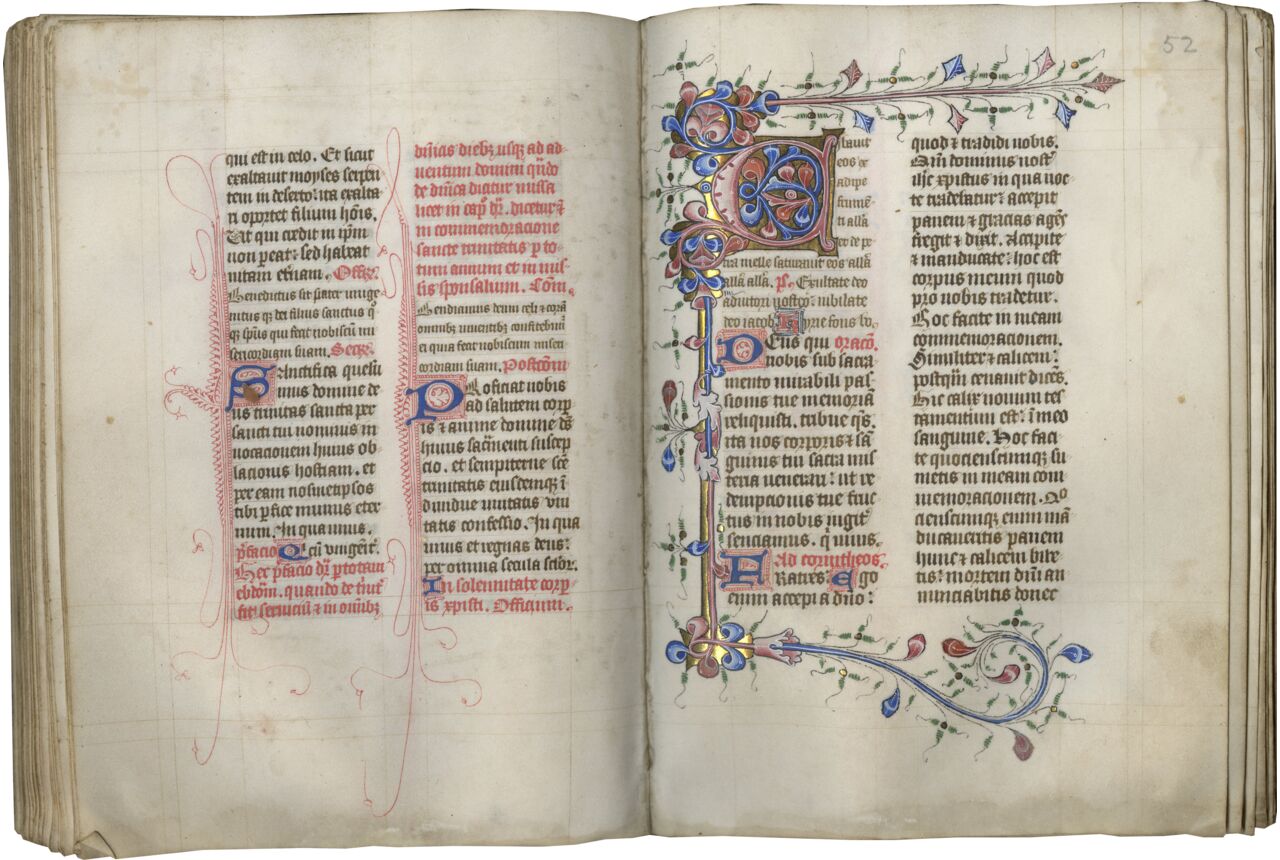 qui est in celo. Et sicut
exaltauit moyses serpen
tem in deserto: ita exalta
ri oportet filium hoīs.
Ut qui credit in ipm̄
non peat: sed habeat
uitam et̄nam. Offēr.
Benedictus sit pater unige
nitus qꝫ dei filius sanctus qꝫ
qꝫ spūs quia fecit nobiscū mi
sericordiam suam. Secr̄.
Sanctifica quesu
mus domine de
us trinitas sancta per
sancti tui nominis in
uocacionem huius ob
lacionis hostiam. et
per eam nosmetipsos
tibi ꝑfice munus eter
num. In qua unus.
p̄facio Q cū unigenit̄.
Hec p̄facio dr̄ ꝑ totam
ebdom̄. quando de t̄nit̄
fit seruiciū ⁊ in omībꝫ
dn̄icis diebꝫ usqꝫ ad ad
uentum domini qn̄do
de dn̄ica dicitur missa
licet in cap̄ dr̄. dicetur ⁊
in commemoracione
sancte trinitatis ꝑ to
tum annum et in mis
sis sponsalium. Com̄.
Benedicimus deum celi ⁊ corā
omnibꝫ uiuentibꝫ confitebim̄
ei quia fecit nobiscum miseri
cordiam suam. Postcōm
Proficiat nobis
ad salutem corꝑ
is ⁊ anime domine ds̄
huius sac̄menti suscep
cio. et sempiterne sc̄e
trinitatis eiusdemqꝫ ī
diuidue unitatis
confessio. In qua
uiuis et regnas deus:
per omnia secula sc̄lor̄.
In solennitate corp
is xp̄isti. Officium.
52
Cibauit
eos ex
adipe
frume̅
ti all̄a
et de pe
tra melle saturauit eos all̄a
all̄a all̄a. p̄s. Exultate deo
adiutori nostro: iubilate
deo iacob. Kyrie fons bo.
Deus qui oracō.
nobis sub sacra
mento mirabili pas
sionis tue memoriā
reliquisti. tribue qs̄.
ita nos corporis ⁊ sā
guinis tui sacra mis
teria uenerari: ut re
dempcionis tue fruc
tus in nobis iugit̄
senciamus. q̄ uiuis.
Ad corintheos.
Fratres: Ego
enim accepi a dn̄o:
quod ⁊ tradidi uobis.
Qm̄ dominus nost̄
ih̄c xp̄istus in qua noc
te tradebatur: accepit
panem ⁊ gracias agēs
fregit ⁊ dixit. Accipite
⁊ manducate: hoc est
corpus meum quod
pro uobis tradetur.
Hoc facite in meam
commemoracionem.
Similiter ⁊ calicem:
postqm̄ cenauit dicēs.
Hic calix nouum tes
tamentum est: ī meo
sanguine. Hoc faci
te quociensc̄umqꝫ su
metis in meam com
memoracionem. Quo
cienscumqꝫ enim mā
ducaueritis panem
hunc ⁊ calicem bibe
tis: mortem dn̄i an
nunciabitis donec